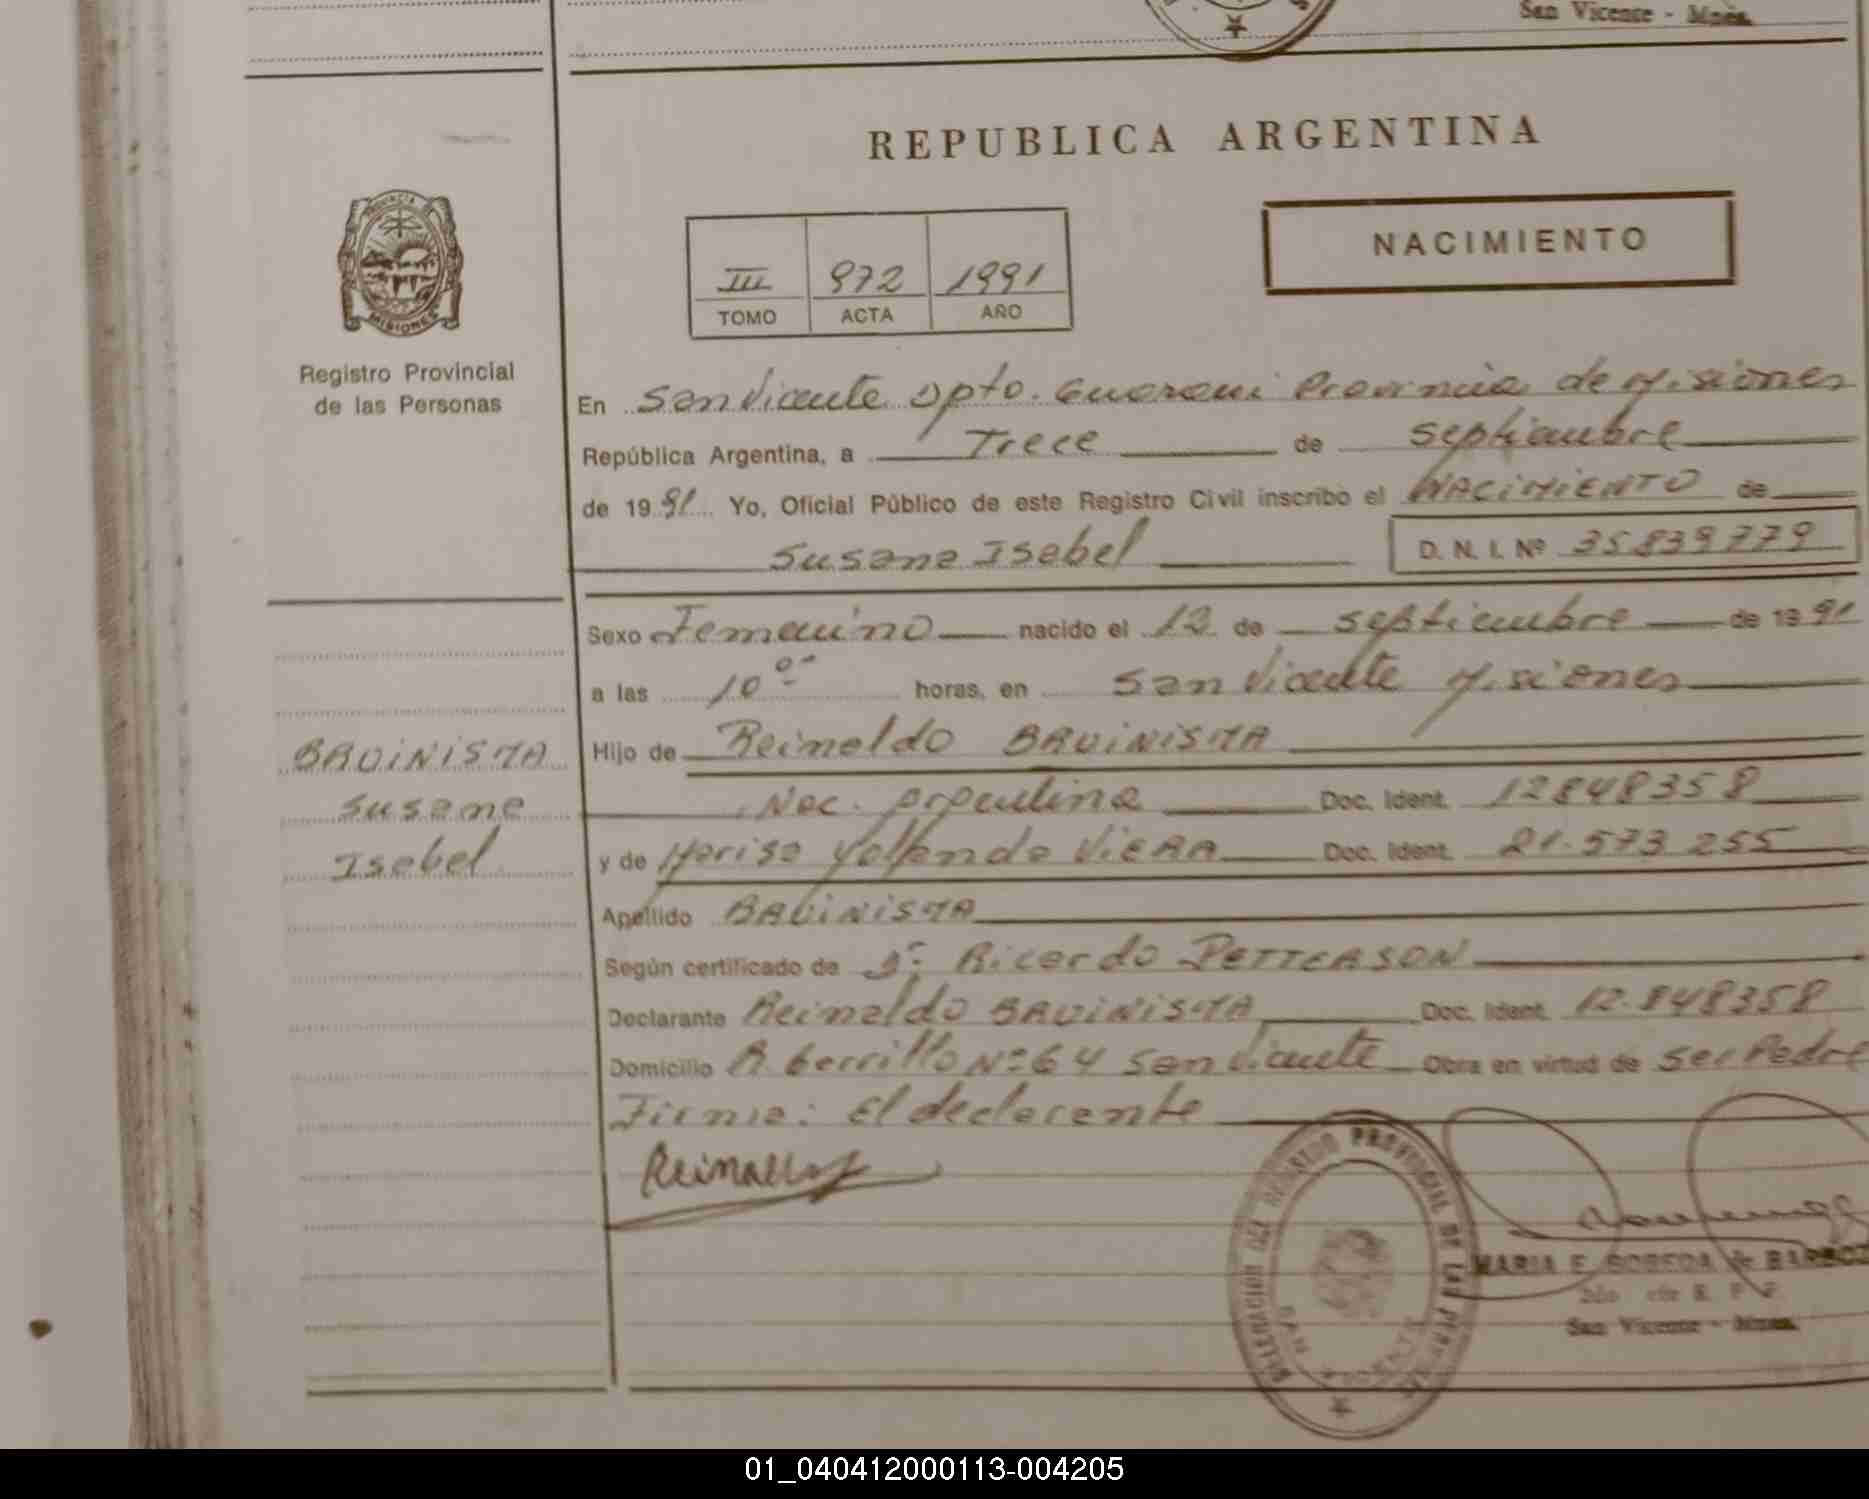 San Vicente - Mnes.
REPUBLICA ARGENTINA
PROVINCIA DE
MISIONES
Registro Provincial
de las Personas
III 972 1991
TOMO ACTA AÑO
NACIMIENTO
En San Vicente Dpto. Guarani Provincia de Misiones
República Argentina, a Trece de septiembre
de 1991 Yo, Oficial Público de este Registro Civil inscribo el NACIMIENTO de
Susana Isabel D. N. I. Nº 35839779
Sexo Femenino nacido el 12 de septiembre de 1991
a las 10 horas, en San Vicente Misiones
Hijo de Reinaldo
Nac. Argentina Doc. Ident. 12848358
y de Marisa Yolanda VIERA Doc. Ident. 21.573 255
Apellido
Según certificado de Ricardo PETTERSON
Declarante Reinaldo Doc. Ident. 12.848358
Domicilio Nº 64 San Vicente Obra en virtud de ser Padre
Firma: El declarante
Susana
Isabel
REGISTRO PROVINCIAL DE LAS
SAN VICENTE
MARIA E. de
San Vicente - Mnes.
01_040412000113-004205